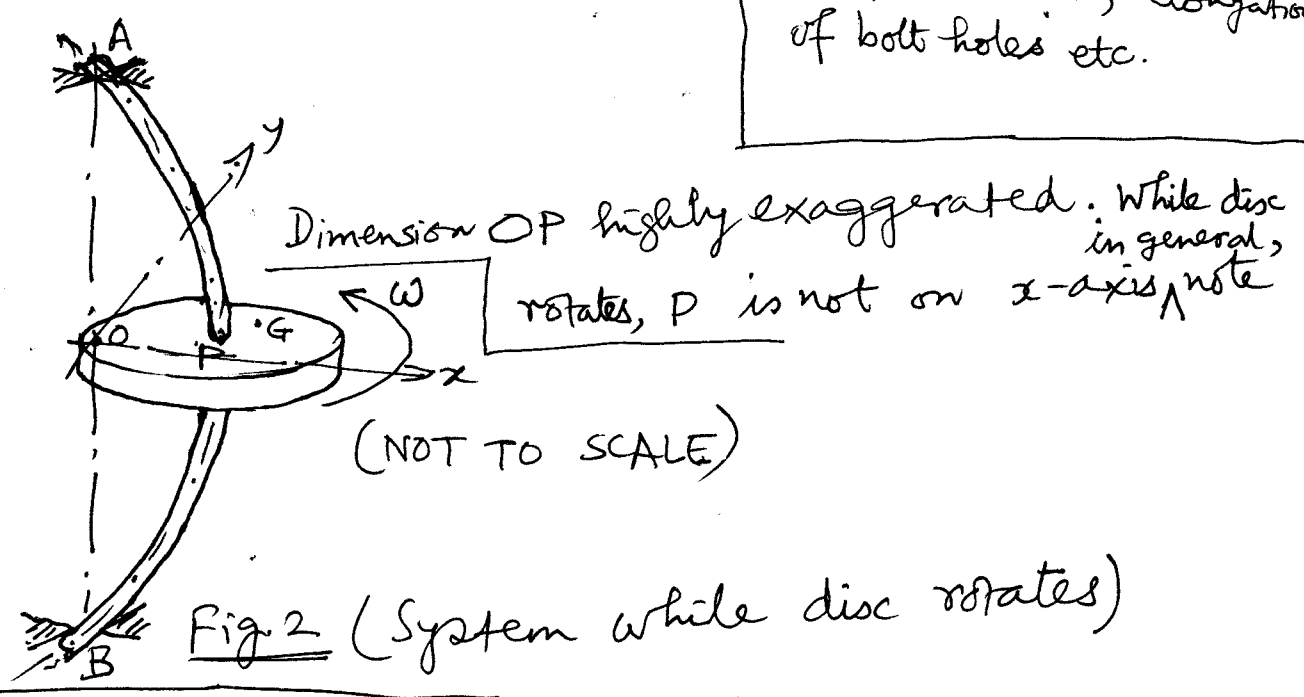 elongation
of bolt holes etc.
A
y
Dimension OP highly exaggerated. While disc
in general,
rotates, P is not on x-axis, ∧ note
ω
O
P
.G
x
(NOT TO SCALE)
Fig. 2 (System while disc rotates)
B